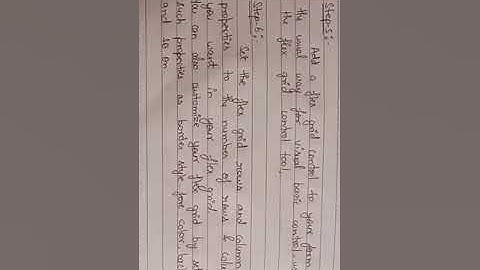 Step-5:-
Add a flex grid control to your form
the usual way for visual basic control, u
the flex grid control tool.
Step-6:-
Set the flex grid rows and column
properties to the number of rows & colu
you want in your flex grid.
You can also customize your flex grid by set
such properties as border style fore color, bac
and so on